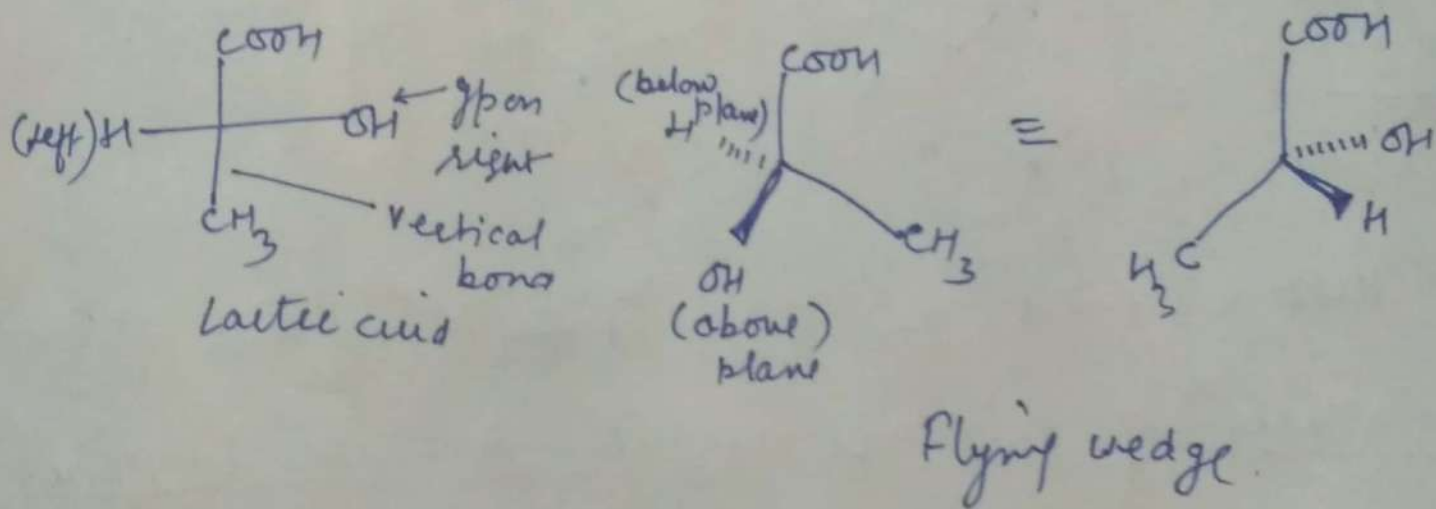 COOH
(left) H
OH ← gp on
right
CH3
vertical
bond
Lactic acid
COOH
(below
plane)
H
OH
(above)
plane
CH3
≡
COOH
OH
H
H3C
Flying wedge